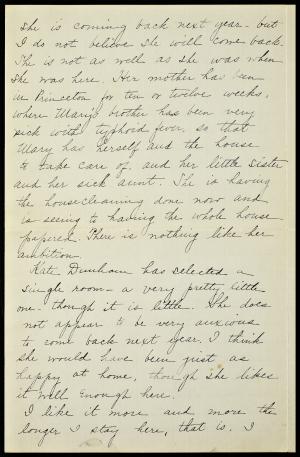 she is coming back next year - but
I do not believe she will come back.
She is not as well as she was when
she was here. Her mother has been
in Princeton for ten or twelve weeks,
where Mary's brother has been very
sick with typhoid fever, so that
Mary has herself and the house
to take care of, and her little sister
and her sick aunt. She is having
the housecleaning done now and
is seeing to having the whole house
papered. There is nothing like her
ambition.
Kate Dunham has selected a
single room - a very pretty little
one - though it is little. She does
not appear to be very anxious
to come back next year. I think
she would have been just as
happy at home, though she likes
it well enough here.
I like it more and more the
longer I stay here, that is, I